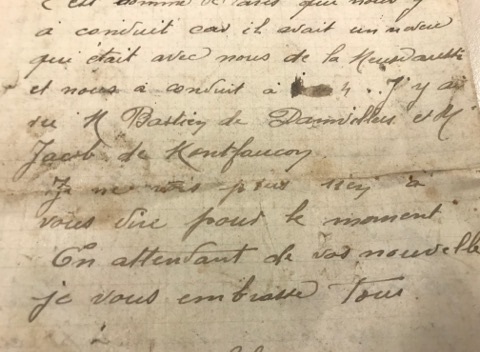 à conduit car il avait un neveu
qui était avec nous de la Meuse aussi
et nous a conduit à 4. J'y ai
vu M Bastien de Damvillers et M
Jacob de Montfaucon
Je ne vois plus rien à
vous dire pour le moment
En attendant de vos nouvelle
je vous embrasse Tous